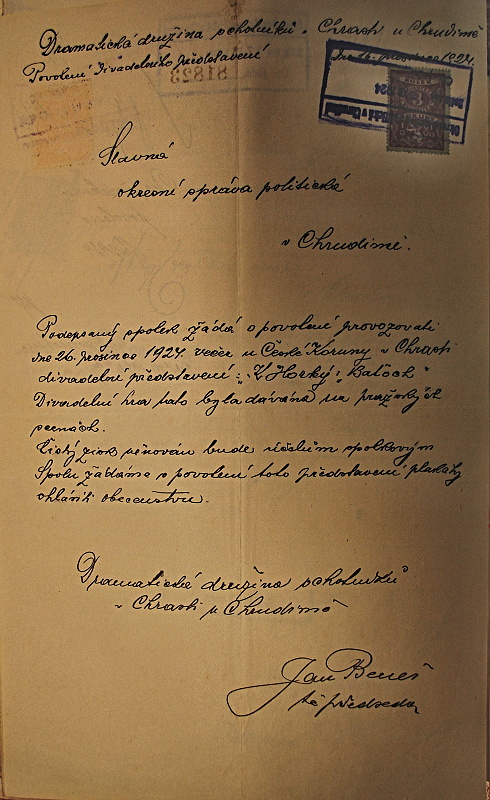 Dramatická družina ochotníků v Chrasti u Chrudimě
Povolení divadelního představení
dne 16. prosince 1924.
81823
3
Slavná
okresní správa politická
v Chrudimi.
Podepsaný spolek žádá o povolení provozovati
dne 26. prosince 1924 večer u České Koruny v Chrasti
divadelní představení: „K. Horký: Baťoch."
Divadelní hra tato byla dávána na pražských
scenách.
Čistý zisk věnován bude účelům spolkovým
Spolu žádáme o povolení toto představení plakáty
ohlásiti obecenstvu.
Dramatická družina ochotníků
v Chrasti u Chrudimě
Jan Beneš
předseda